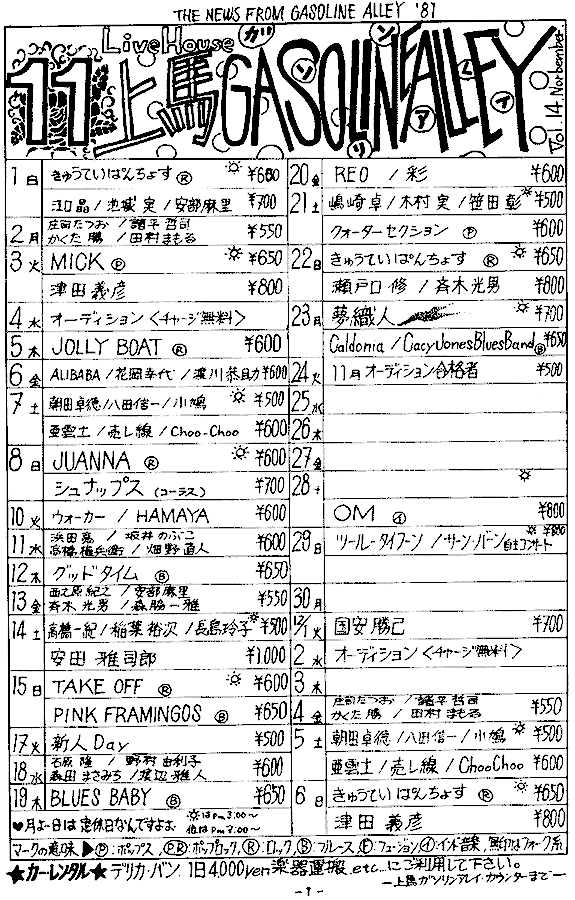 THE NEWS FROM GASOLINE ALLEY '81
Live House ガソリンアレイ
11 上馬 GASOLINE ALLEY
Vol.14 Norbember
1 日 きゅうていぱんちょす Ⓡ ¥600
江口晶/池城実/安部麻里 ¥700
2 月 庄司たつお/諸平哲司 かくた勝/田村まもる ¥550
3 火 MICK Ⓟ ¥650
津田義彦 ¥800
4 水 オーディション〈チャージ無料〉
5 木 JOLLY BOAT Ⓡ ¥600
6 金 ALIBABA/花岡幸代/渡川恭助 ¥600
7 土 朝田卓徳/八田信一/小鳩 ¥500
亜雲土/売し線/Choo-Choo ¥600
8 日 JUANNA Ⓡ ¥600
シュナップス (コーラス) ¥700
10 火 ウォーカー / HAMAYA ¥600
11 水 浜田亮/坂井のぶこ 高橋権兵衛/畑野直人 ¥600
12 木 グッドタイム Ⓑ ¥650
13 金 西之原紀之/安部麻里 斉木光男/森脇一雅 ¥550
14 土 高橋一紀/稲葉裕次/長島玲子 ¥500
安田雅司郎 ¥1,000
15 日 TAKE OFF Ⓡ ¥600
PINK FRAMINGOS Ⓑ ¥650
17 火 新人Day ¥500
18 水 石原隆/野村由利子 森田まさみち/渡辺雅人 ¥600
19 木 BLUES BABY Ⓑ ¥650
♥月よー日は定休日なんですよぉ ☼はPm 3:00〜 他はPm 7:00〜
20 金 REO / 彩 ¥600
21 土 嶋崎卓/木村実/笹田彰 ¥500
クォーターセクション Ⓟ ¥600
22 日 きゅうていぱんちょす Ⓡ ¥650
瀬戸口修/斉木光男 ¥800
23 月 夢織人 ¥700
Caldonia/Cacy Jones Blues Band Ⓑ ¥650
24 火 11月オーディション合格者 ¥500
25 水
26 木
27 金
28 土
OM ㋑ ¥800
29 日 ツールータイフーン/サーン・バーン 自主コンサート ¥800
30 月
12/1 火 国安勝己 ¥700
2 水 オーディション〈チャージ無料〉
3 木
4 金 庄司たつお/諸平哲司 かくた勝/田村まもる ¥550
5 土 朝田卓徳/八田信一/小鳩 ¥500
亜雲土/売し線/ChooChoo ¥600
6 日 きゅうていぱんちょす Ⓡ ¥650
津田義彦 ¥800
マークの意味▶Ⓟ:ポップス,ⓅⓇ:ポップロック,Ⓡ:ロック,Ⓑ:ブルース,Ⓕ:フュージョン,㋑:インド音楽,無印はフォーク系
★カーレンタル★ デリカ・バン 1日4,000yen 楽器運搬 etc...にご利用して下さい。
—上馬ガソリンアレイ・カウンターまで—
-1-